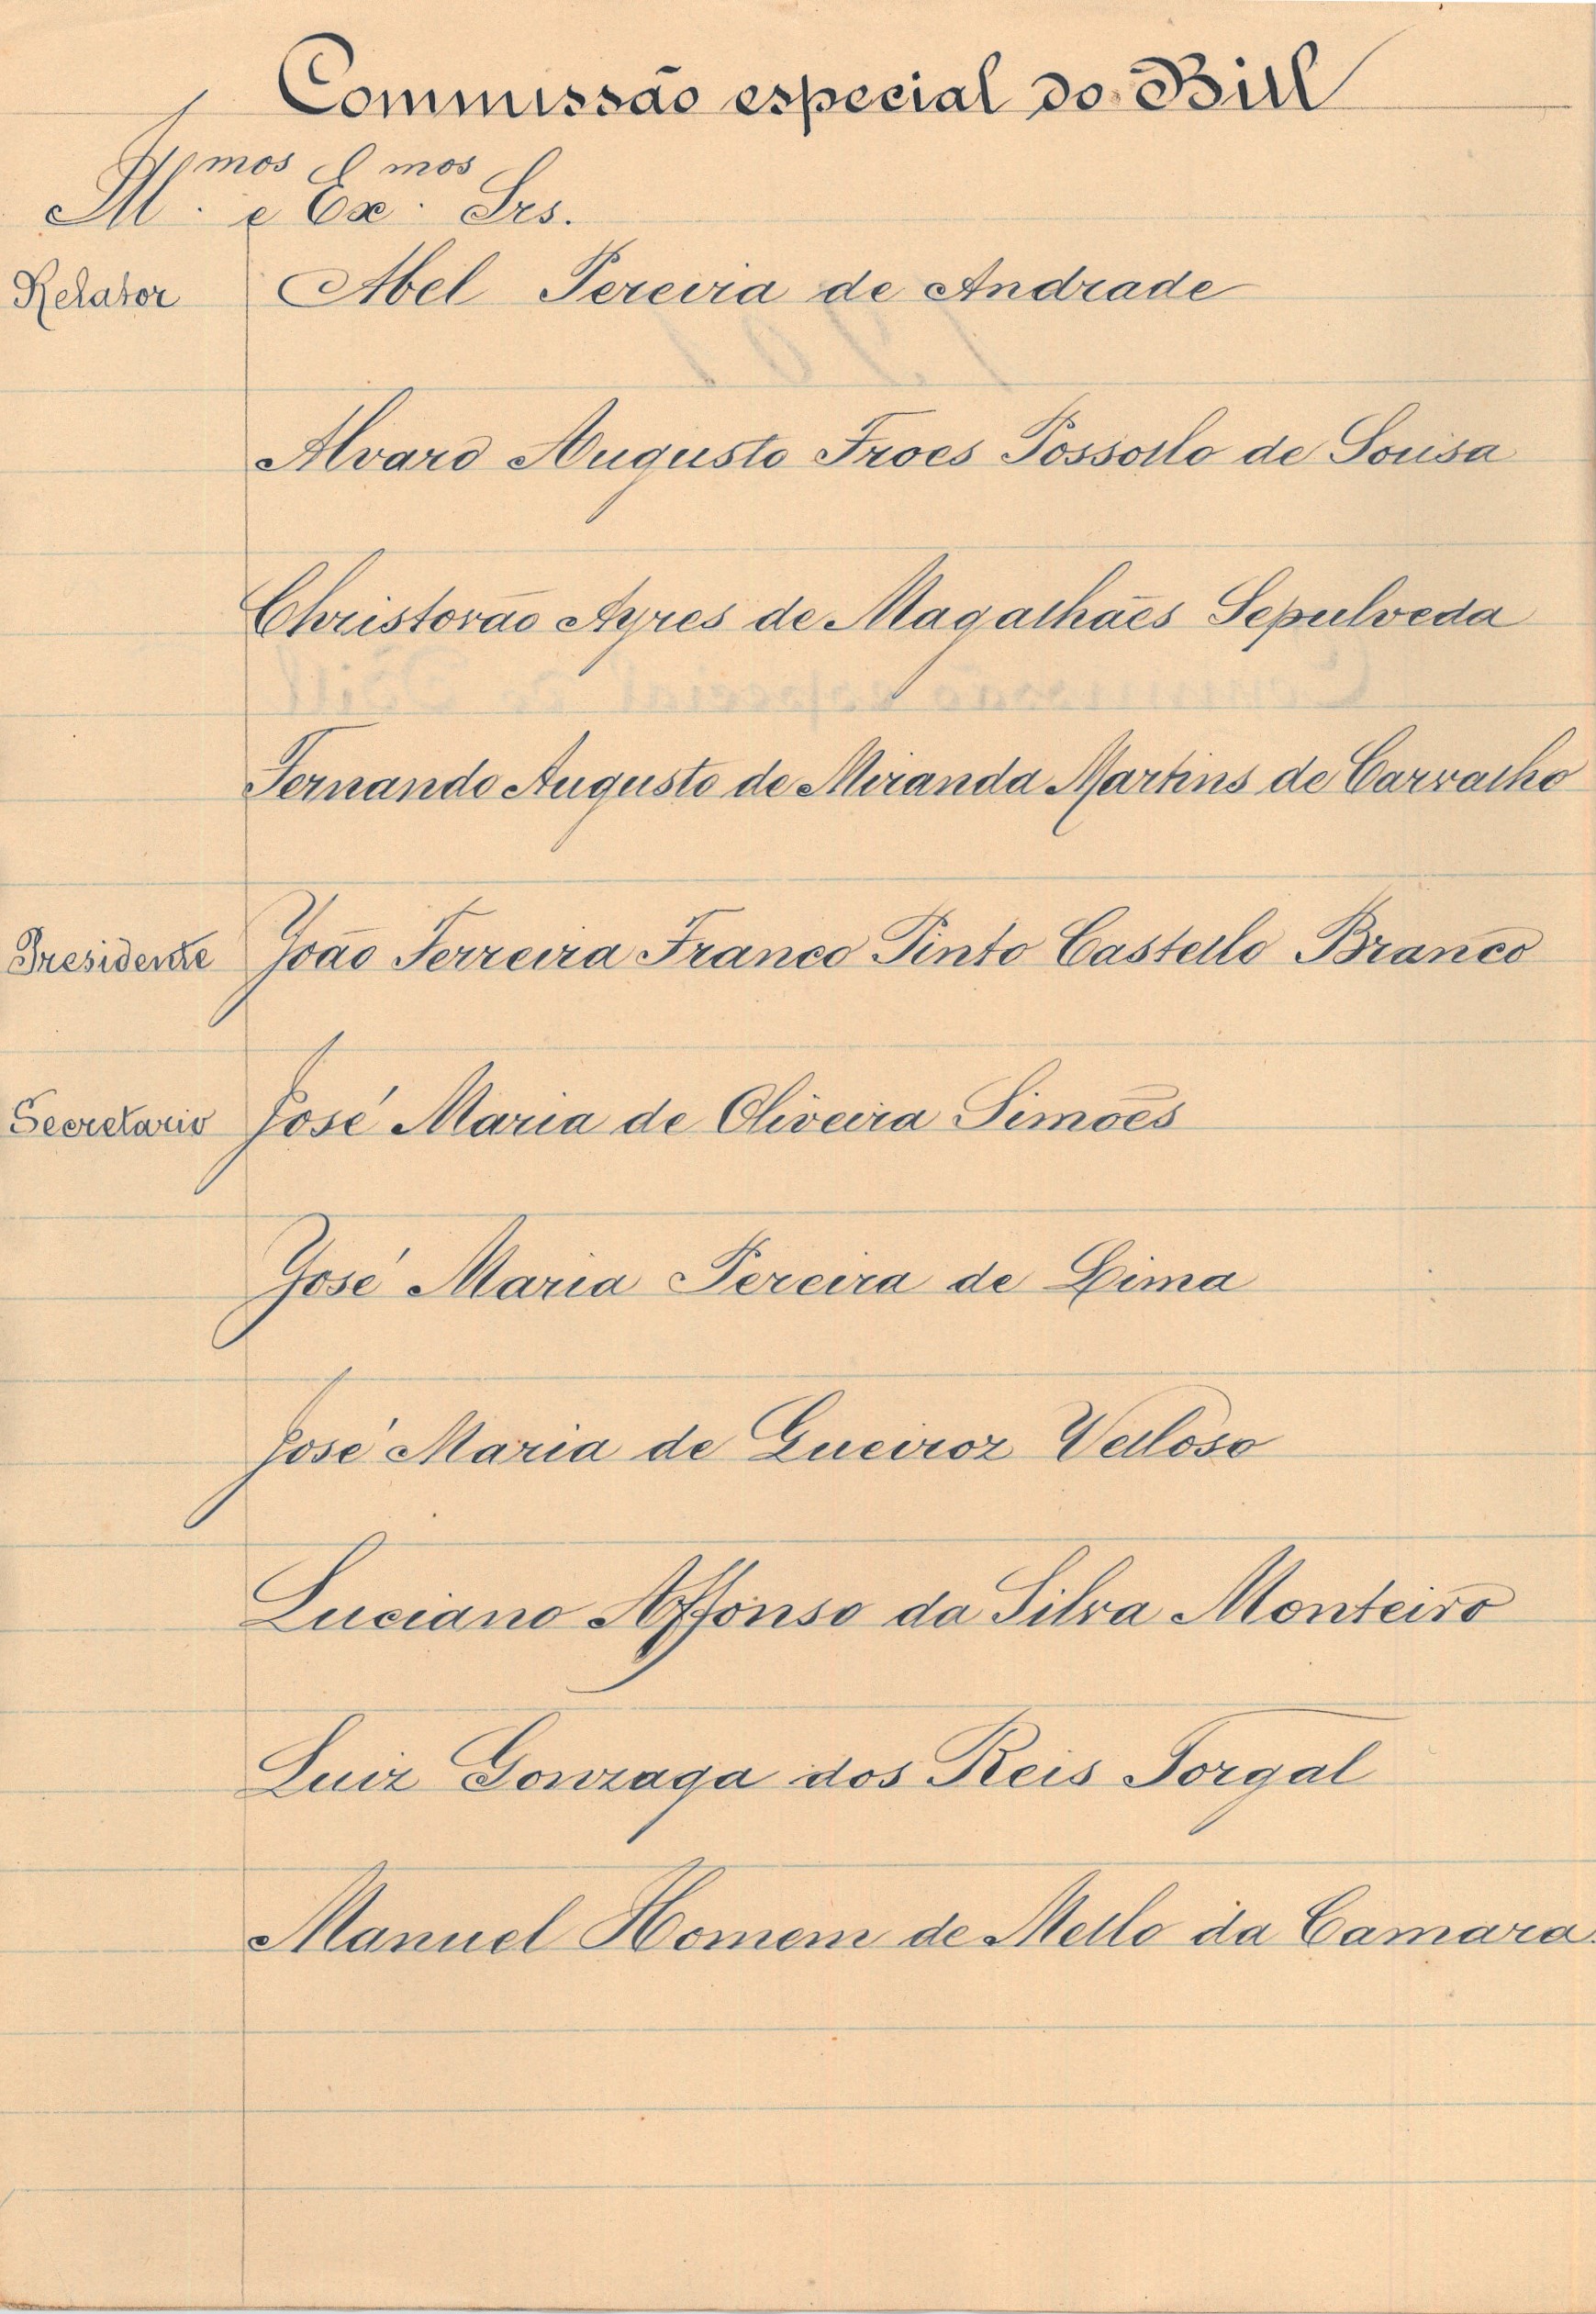 Commissão especial do Bill
Ill.mos e Ex.mos Srs.
Relator Abel Pereira de Andrade
Alvaro Augusto Froes Possollo de Sousa
Christovão Ayres de Magalhães Sepulveda
Fernando Augusto de Miranda Martins de Carvalho
Presidente João Ferreira Franco Pinto Castello Branco
Secretario José Maria de Oliveira Simões
José Maria Pereira de Lima
José Maria de Queiroz Velloso
Luciano Affonso da Silva Monteiro
Luiz Gonzaga dos Reis Torgal
Manuel Homem de Mello da Camara.